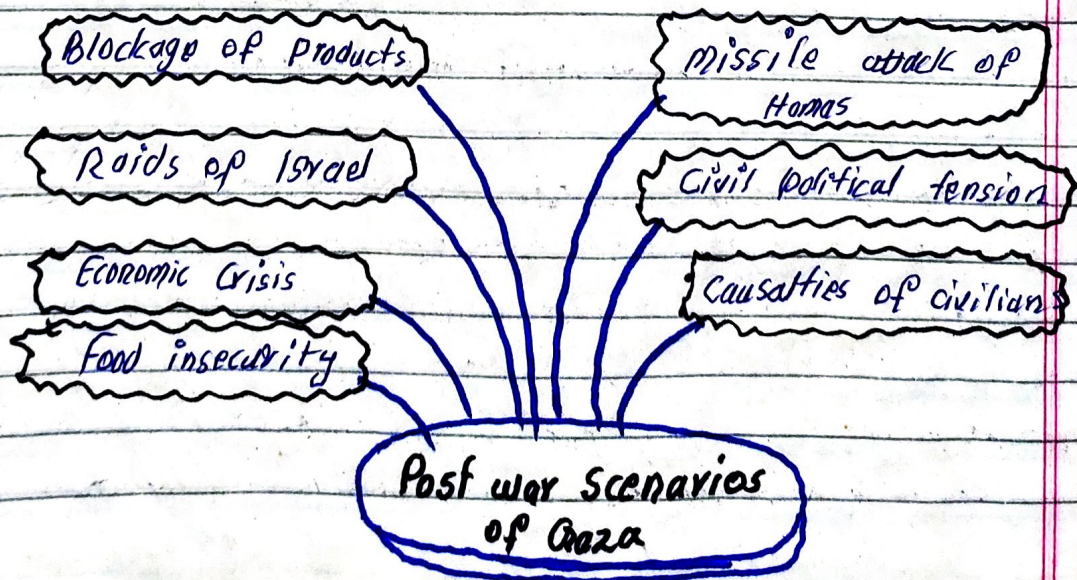 Blockage of Products
Raids of Israel
Economic Crisis
Food insecurity
Missile attack of
Hamas
Civil political tension
Causalties of civilians
Post war Scenarios
of Gaza